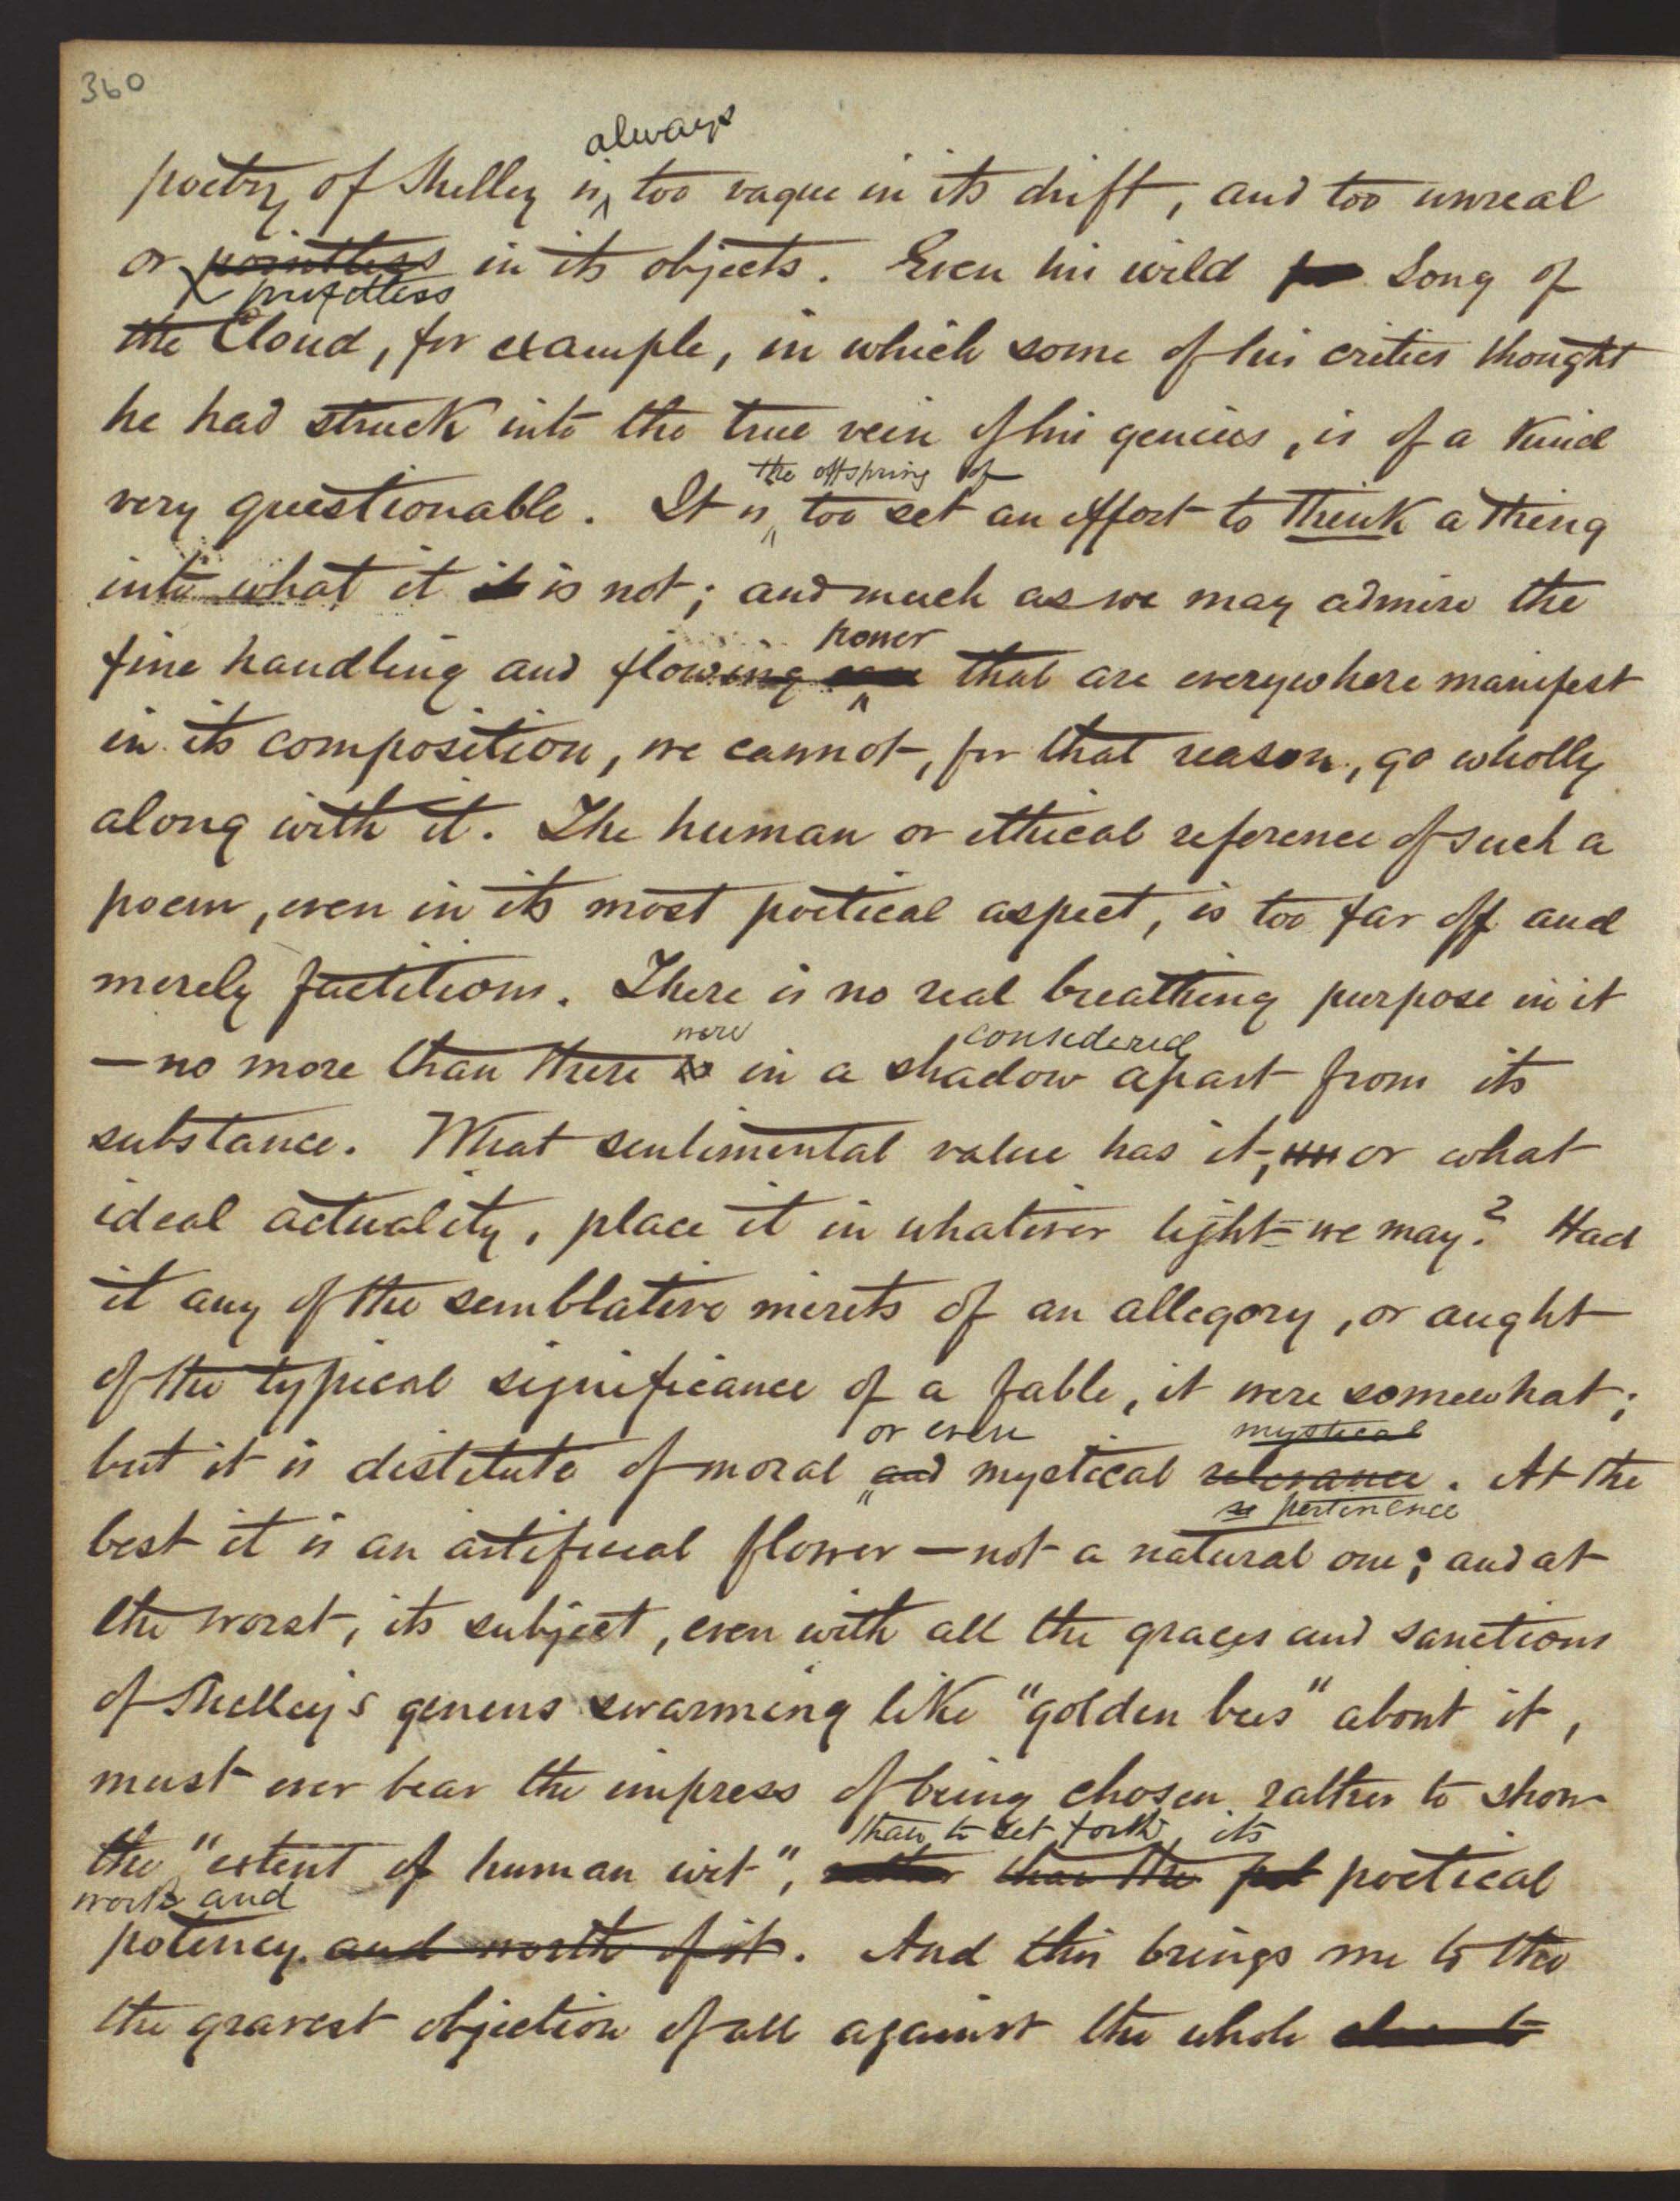 360
always
poetry of Shelley is too vague in its drift, and too unreal
or pointless in its objects. Even his wild Song of
profitless
the Cloud, for example, in which some of his critics thought
he had struck into the true vein of his genius, is of a kind
the offspring of
very questionable. It is too set an effort to think a thing
into what it is not; and much as we may admire the
power
fine handling and flowing that are everywhere manifest
in its composition, we cannot, for that reason, go wholly
along with it. The human or ethical reference of such a
poem, even in its most poetical aspect, is too far off and
merely factitious. There is no real breathing purpose in it
were considered
—no more than there is in a shadow apart from its
substance. What sentimental value has it, or what
ideal actuality, place it in whatever light we may? Had
it any of the semblative merits of an allegory, or aught
of the typical significance of a fable, it were somewhat;
or even mystical
but it is destitute of moral and mystical relevance. At the
pertinence
best it is an artificial flower — not a natural one; and at
the worst, its subject, even with all the graces and sanctions
of Shelley's genius swarming like "golden bees" about it,
must ever bear the impress of being chosen rather to show
than to set forth its
the "extent of human wit", rather than the poetical
worth and
potency and worth of it. And this brings me to the
the gravest objection of all against the whole